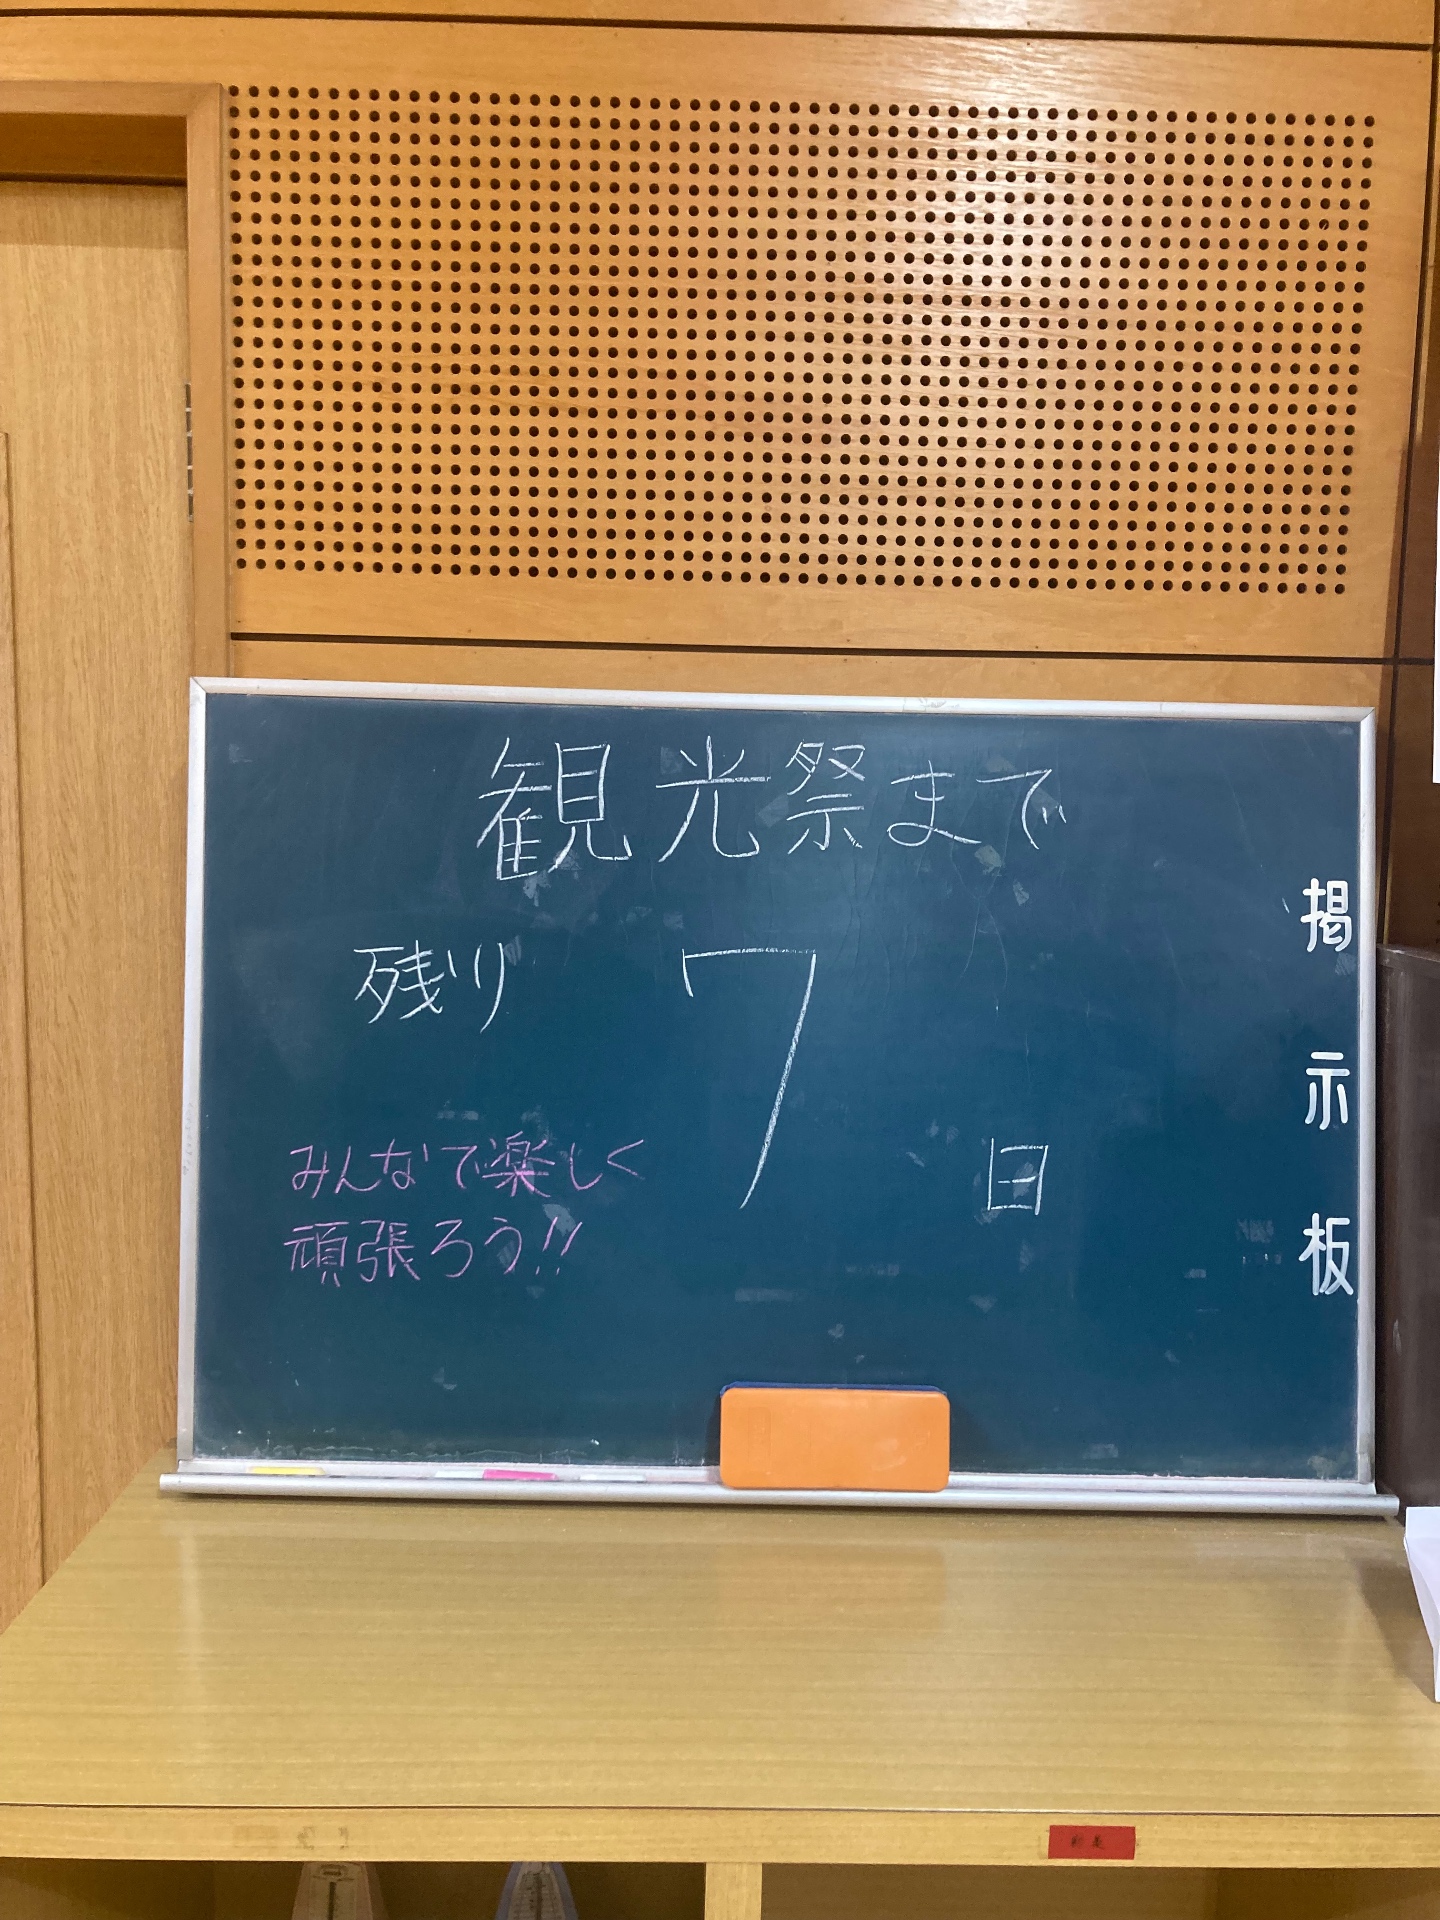 観光祭まで
残り 7 日
みんなで楽しく
頑張ろう!!
掲示板